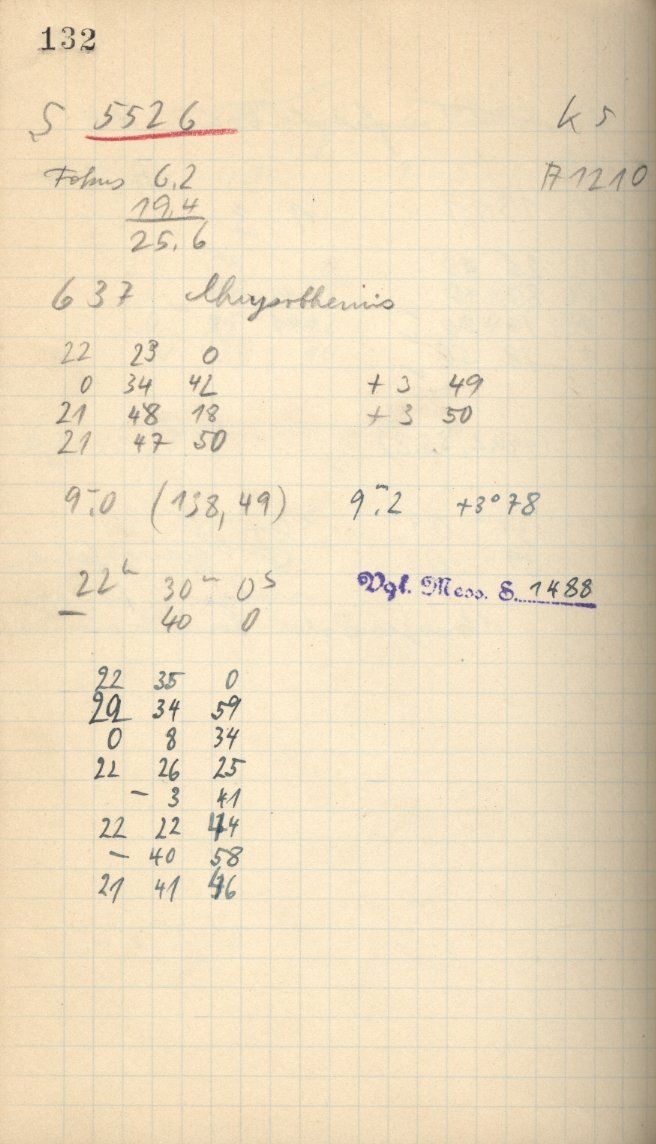 132
S 5526 K 5
Fokus 6,2 A 1210
19,4
25,6
637 Chrysothemis
22 23 0
0 34 42 + 3 49
21 48 18 + 3 50
21 47 50
9ᵐ,0 (138,49) 9ᵐ,2 +3°78
22ʰ 30ᵐ 0ˢ Vgl. Mess. S. 1488
— 40 0
22 35 0
22 34 59
0 8 34
22 26 25
- 3 41
22 22 44
- 40 58
21 41 46